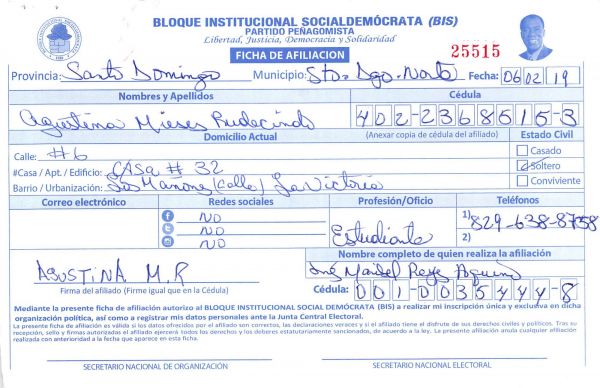 BLOQUE INSTITUCIONAL SOCIALDEMÓCRATA (BIS)
PARTIDO PEÑAGOMISTA
Libertad, Justicia, Democracia y Solidaridad
FICHA DE AFILIACION
25515
Provincia: Santo Domingo Municipio: Sto. Dgo. Norte Fecha: 06 02 19
Nombres y Apellidos Cédula
Agustina Mieses Rudecindo 402-2368515-3
Domicilio Actual (Anexar copia de cédula del afiliado) Estado Civil
Calle: #6 Casado
#Casa / Apt. / Edificio: CASA # 32 Soltero
Barrio / Urbanización: Los Manone (Calle) La Victoria Conviviente
Correo electrónico Redes sociales Profesión/Oficio Teléfonos
NO 1) 829-638-8758
NO Estudiante 2)
NO
Nombre completo de quien realiza la afiliación
AGUSTINA M.R José Manuel Reyes
Firma del afiliado (Firme igual que en la Cédula) Cédula: 001-0035444-8
Mediante la presente ficha de afiliación autorizo al BLOQUE INSTITUCIONAL SOCIAL DEMÓCRATA (BIS) a realizar mi inscripción única y exclusiva en dicha
organización política, así como a registrar mis datos personales ante la Junta Central Electoral.
La presente ficha de afiliación es válida si los datos ofrecidos por el afiliado son correctos, las declaraciones veraces y si el afiliado tiene el disfrute de sus derechos civiles y políticos. Tras su
recepción, sello y firmas autorizadas el afiliado ejercerá todos los derechos y los deberes estatutariamente sancionados, de acuerdo a la ley. La presente afiliación anula cualquier afiliación
realizada con anterioridad a la fecha que aparece en esta ficha.
SECRETARIO NACIONAL DE ORGANIZACIÓN SECRETARIO NACIONAL ELECTORAL